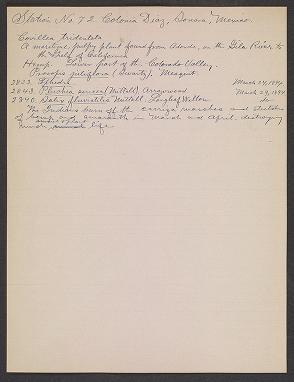 Station No 72. Colonia Diaz, Sonora, Mexico.
Covillea tridentata
A maritime, puffy plant found from Adonde, on the Gila River to
the Gulf of California.
Hemp. Lower part of the Colorado Valley.
Prosopis juliflora (Swartz). Mesquit.
2823. Ephedra March 24, 1894
2843. Pluchea sericea (Nuttall). Arrowwood March 29, 1894
2840. Salix fluviatilis Nuttall. Longleaf Willow do
The Indians burn off the carrizo marshes and stretches
of hemp and amaranth in March and April, destroying
much animal & plant life.